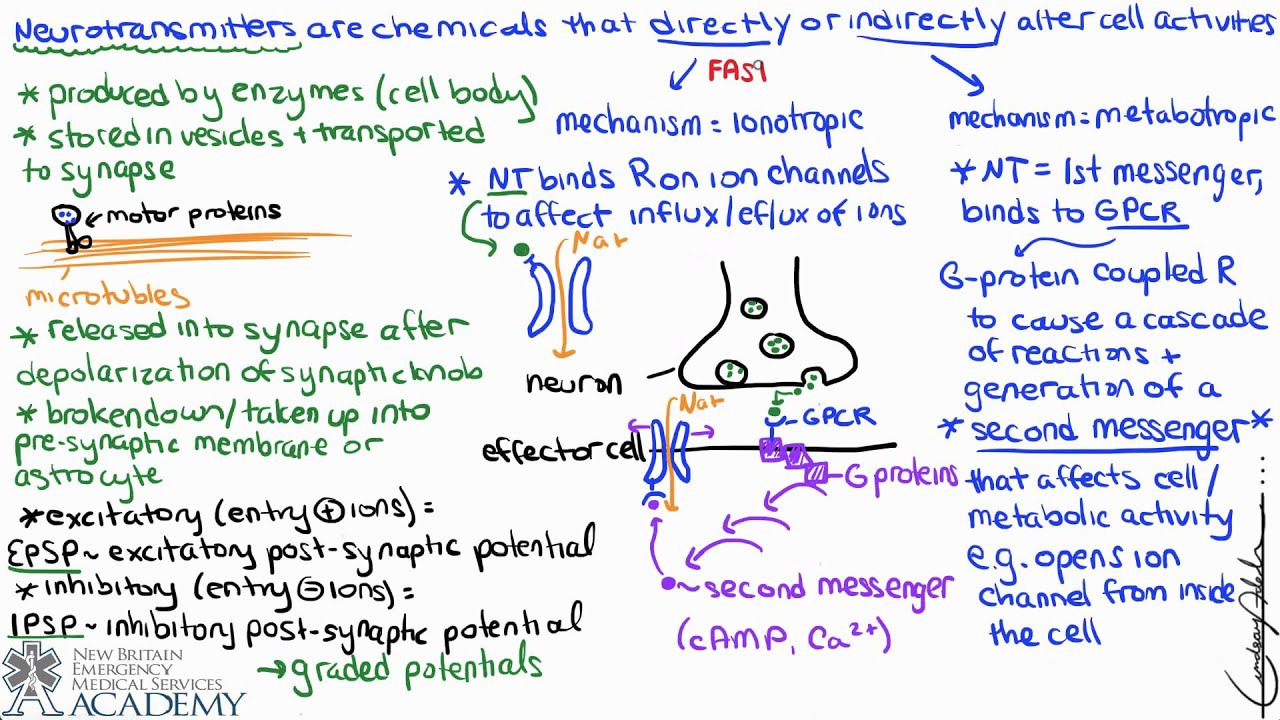 Neurotransmitters are chemicals that directly or indirectly alter cell activities
* produced by enzymes (cell body)
* stored in vesicles + transported
to synapse
motor proteins
microtubles
* released into synapse after
depolarization of synaptic knob
* broken down/taken up into
pre-synaptic membrane or
astrocyte
* excitatory (entry ⊕ ions) =
EPSP ~ excitatory post-synaptic potential
* inhibitory (entry ⊖ ions) =
IPSP ~ inhibitory post-synaptic potential
→ graded potentials
NEW BRITAIN
EMERGENCY
MEDICAL SERVICES
ACADEMY
FAST
mechanism = ionotropic
* NT binds R on ion channels
to affect influx/eflux of ions
Na+
neuron
Na+
GPCR
effector cell
G proteins
second messenger
(cAMP, Ca²⁺)
mechanism = metabotropic
* NT = 1st messenger,
binds to GPCR
G-protein coupled R
to cause a cascade
of reactions +
generation of a
* second messenger *
that affects cell/
metabolic activity
e.g. opens ion
channel from inside
the cell